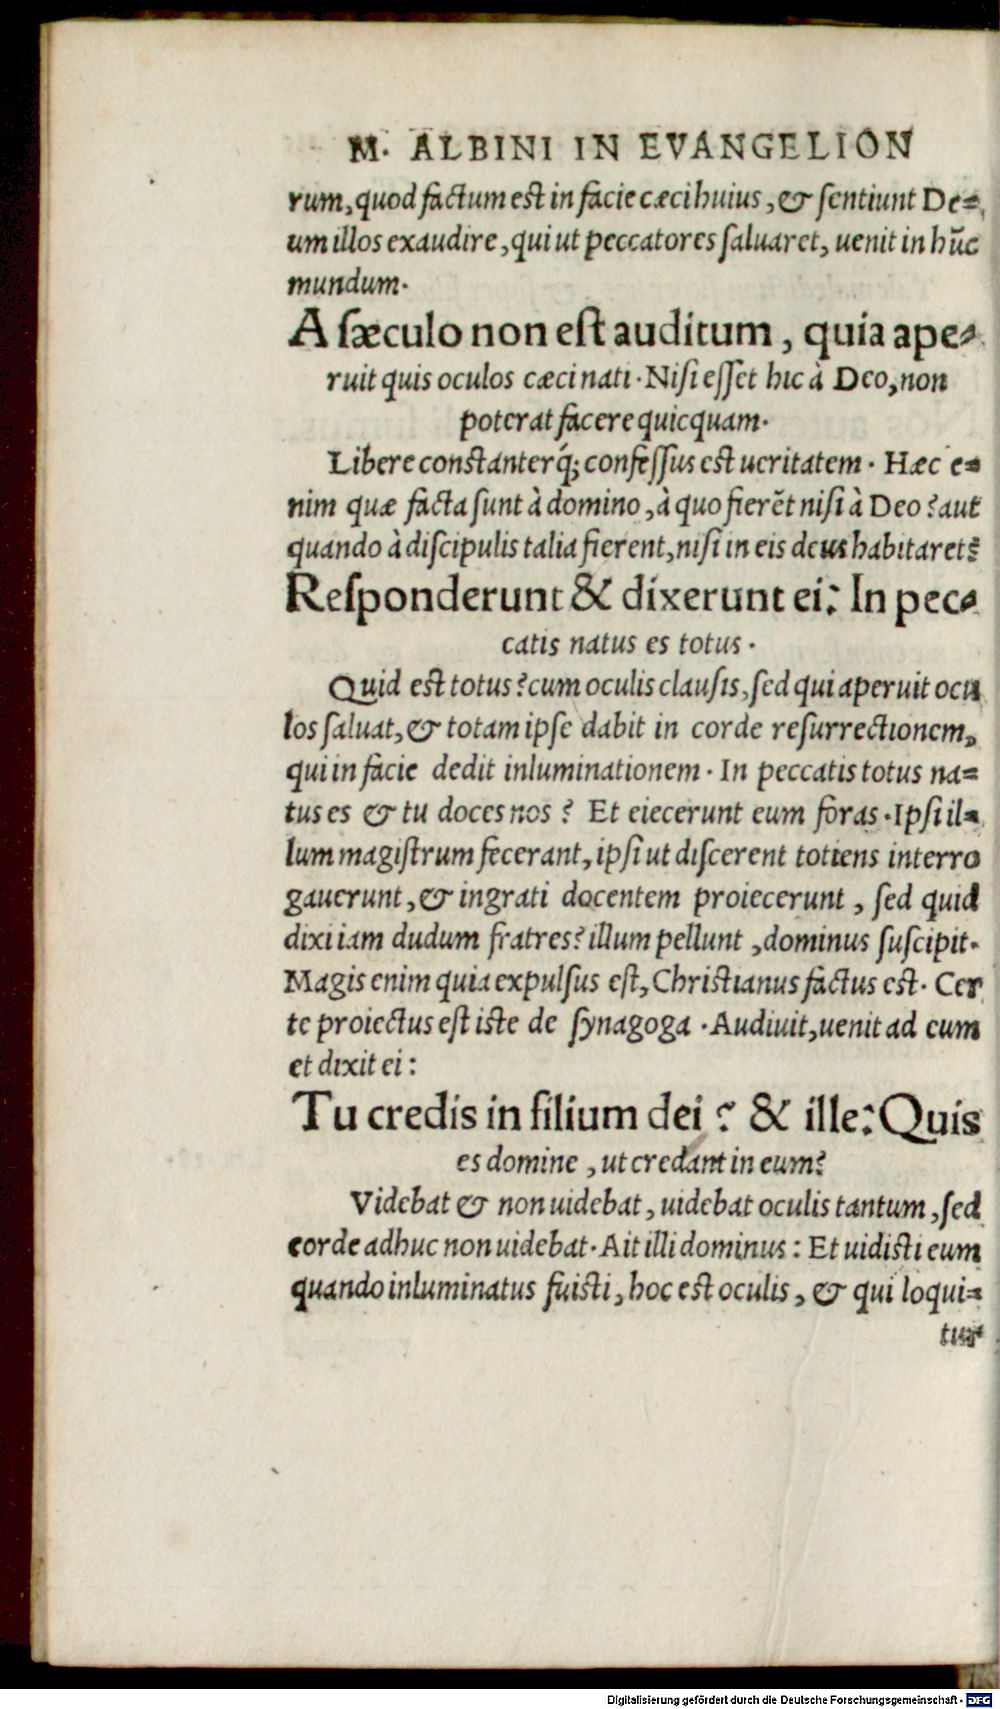 M. ALBINI IN EVANGELION
rum, quod factum est in facie cæci huius, & sentiunt De=
um illos exaudire, qui ut peccatores saluaret, uenit in hūc
mundum.
A sæculo non est auditum, quia ape=
ruit quis oculos cæci nati. Nisi esset hic à Deo, non
poterat facere quicquam.
Libere constanterq́; confessus est ueritatem. Hæc e=
nim quæ facta sunt à domino, à quo fierēt nisi à Deo? aut
quando à discipulis talia fierent, nisi in eis deus habitaret?
Responderunt & dixerunt ei: In pec=
catis natus es totus.
Quid est totus? cum oculis clausis, sed qui aperuit ocu
los saluat, & totam ipse dabit in corde resurrectionem,
qui in facie dedit inluminationem. In peccatis totus na=
tus es & tu doces nos? Et eiecerunt eum foras. Ipsi il=
lum magistrum fecerant, ipsi ut discerent totiens interro
gauerunt, & ingrati docentem proiecerunt, sed quid
dixi iam dudum fratres? illum pellunt, dominus suscipit.
Magis enim quia expulsus est, Christianus factus est. Cer
te proiectus est iste de synagoga. Audiuit, uenit ad eum
et dixit ei:
Tu credis in filium dei? & ille: Quis
es domine, ut credam in eum?
Videbat & non uidebat, uidebat oculis tantum, sed
corde adhuc non uidebat. Ait illi dominus: Et uidisti eum
quando inluminatus fuisti, hoc est oculis, & qui loqui=
tur
Digitalisierung gefördert durch die Deutsche Forschungsgemeinschaft - DFG